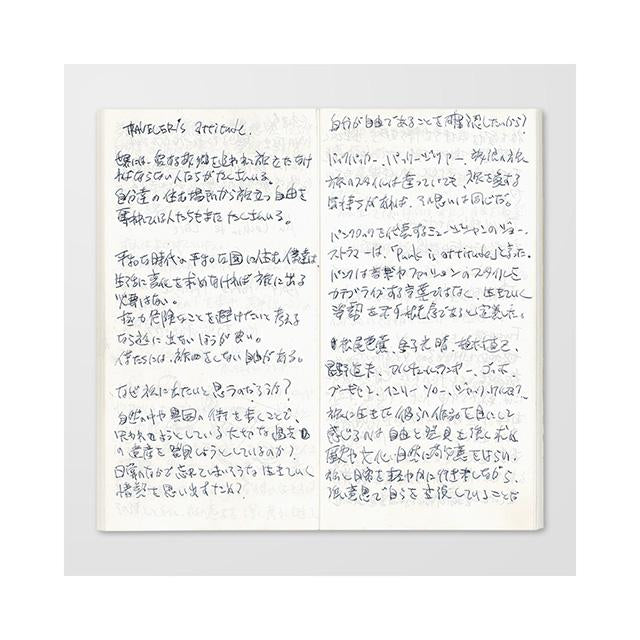 TRAVELER's attitude.
世界には、愛する故郷を追われ旅をたなけ
ればならない人たちがたくさんいる。
自分達の住む場所から旅立つ自由を
奪われている人たちもまた たくさんいる。
平和な時代の平和な国に住む僕達は、
生活に変化を求めなければ旅に出る
必要はない。
極力危険なことを避けたいと考える
なら旅に出ないほうが良い。
僕たちには、旅をしない自由がある。
なぜ旅に出たいと思うのだろうか?
自然の中や異国の街を歩くことで、
失われようとしている大切な過去
の遺産を発見しようとしているのか?
日常のなかで忘れてしまいそうな生きていく
情熱を思い出すため?
自分が自由であることを確認したいから?
バックパッカー、バッグ
旅のスタイルは違っていても、旅を愛する
気持ちがあれば、その思いは同じだ。
パンクロックを代表するミュージシャンのジョー・
ストラマーは、「Punk is attitude」と言った。
パンクは音楽やファッションのスタイルを
カテゴライズする言葉ではなく、生きていく
姿勢を示す態度であると定義した。
松尾芭蕉、金子光晴、植村直己、
星野道夫、ヴィム・ヴェンダース、ゴッホ、
ゴーギャン、ヘンリー・ソロー、ジャック・
旅に生きた彼らの作品を目にして
感じるのは自由と発見を強く求め
歴史や文化、自然に敬意をはらい、
旅と日常を軽やかに行き来しながら、
強い意思で自らを主張していることだ